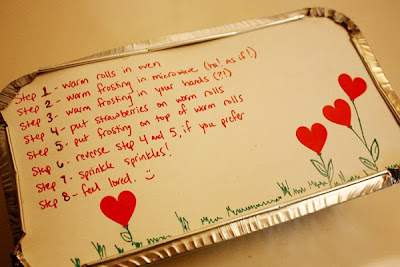 Step 1 - warm rolls in oven
Step 2 - warm frosting in microwave (ha! as if!)
Step 3 - warm frosting in your hands (?!)
Step 4 - put strawberries on warm rolls
Step 5 - put frosting on top of warm rolls
Step 6 - reverse step 4 and 5, if you prefer
Step 7 - sprinkle sprinkles!
Step 8 - feel loved. :)